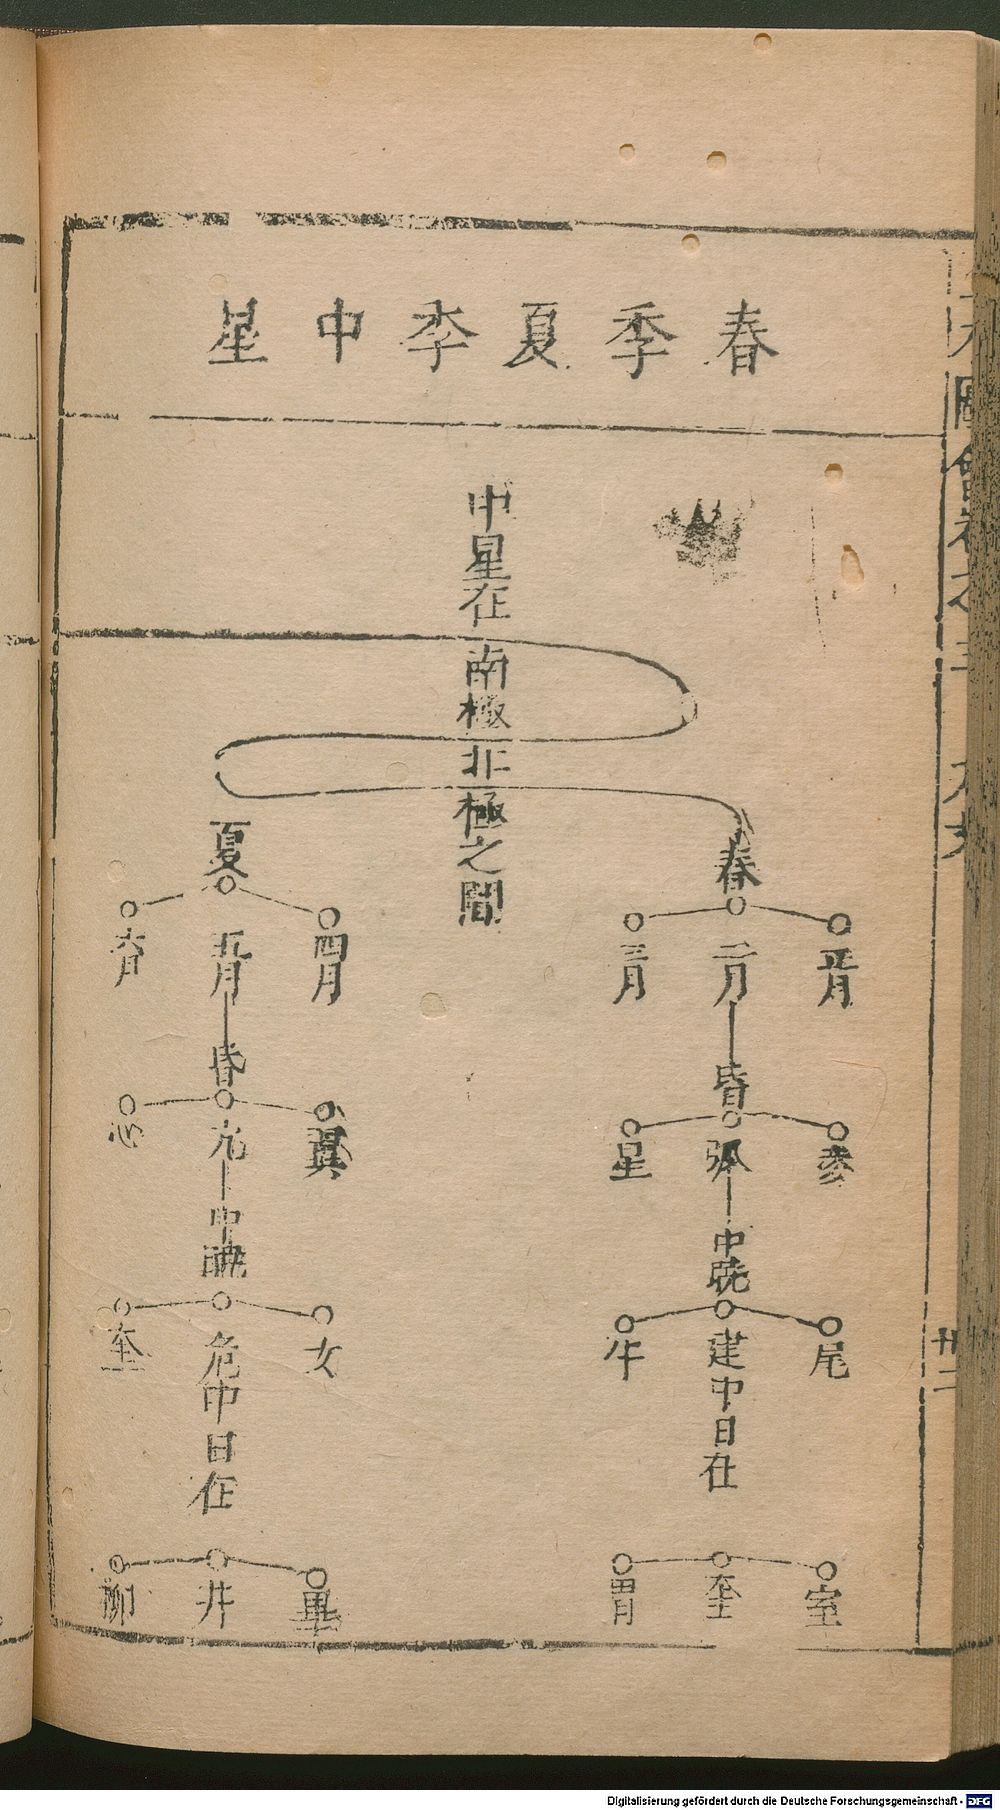 春季夏季中星
中星在南極北極之間
春
正月
二月
三月
昏
參
弧
星
中
曉
尾
建
牛
中
日在
室
奎
胃
夏
四月
五月
六月
昏
翼
亢
心
中
曉
女
危
奎
中
日在
畢
井
柳
圖會
卅二
Digitalisierung gefördert durch die Deutsche Forschungsgemeinschaft - DFG